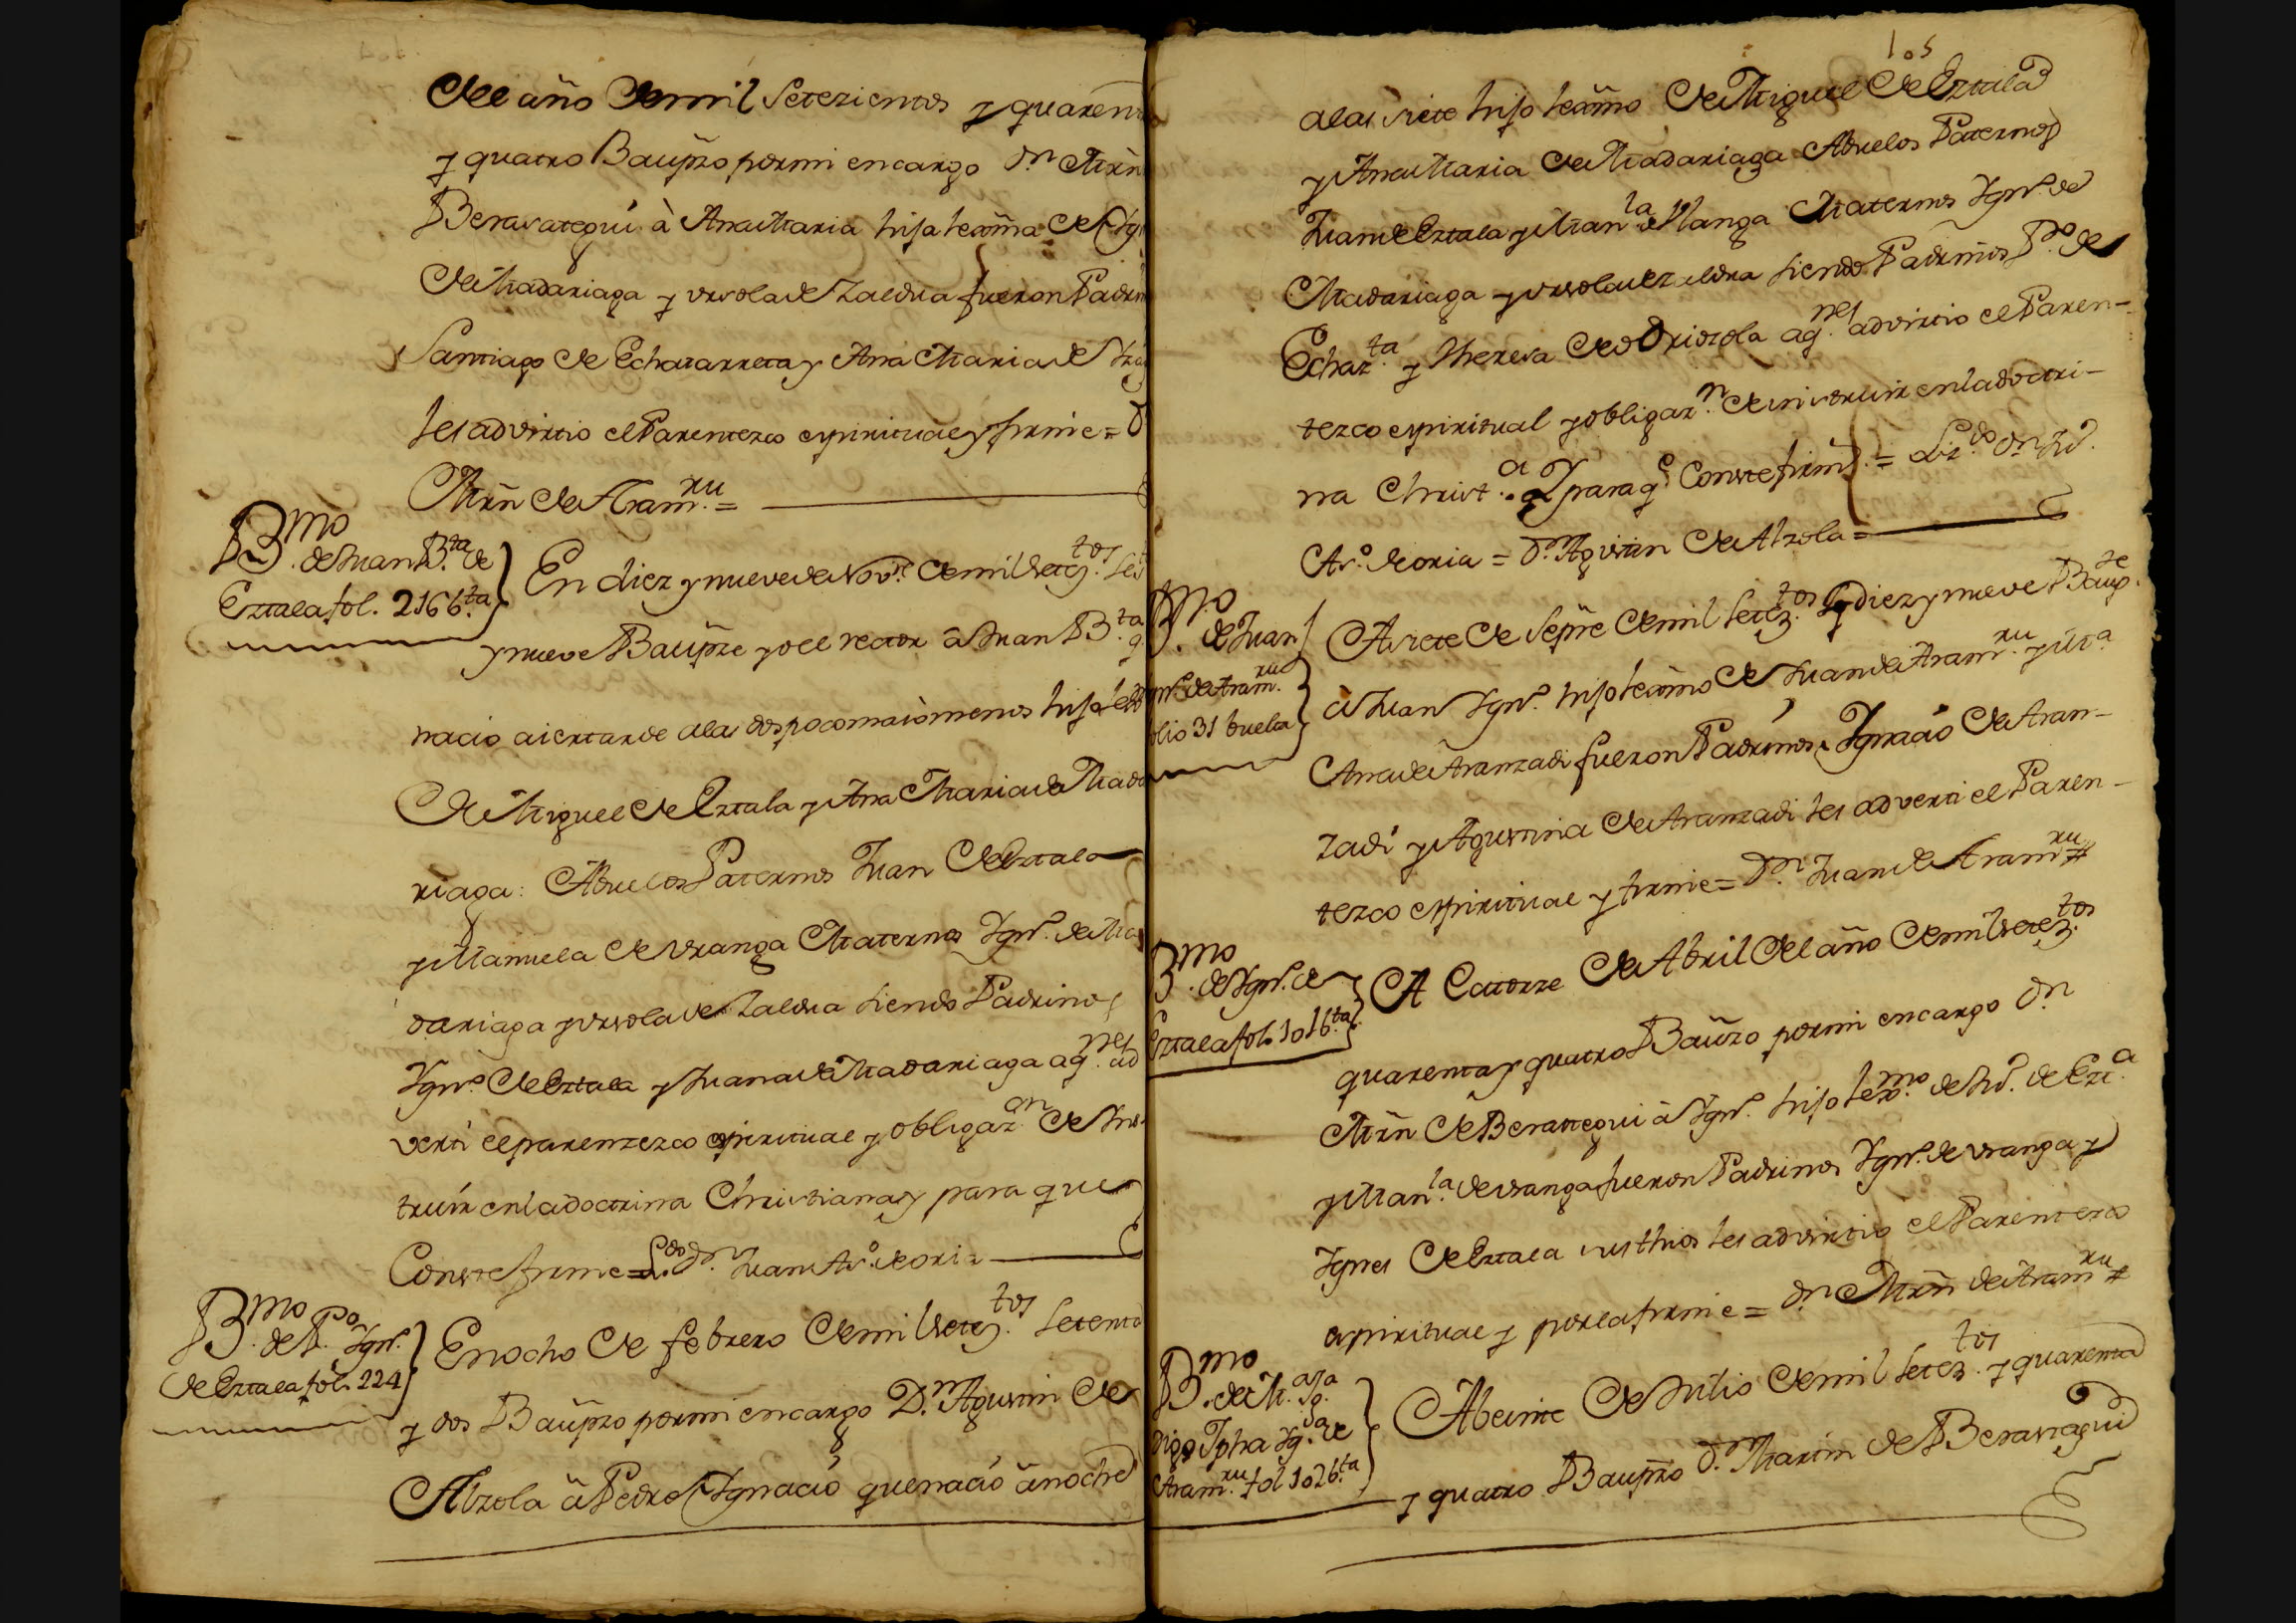 del año de mil Setezientos y quaren
y quatro Baup̃zo por mi encargo Dn. Mrn̄
Berasategui à Ana Maria hija lex̃ma de Ygn
de Madariaga y Ursola de Zaldua fueron Padrin
Santiago de Echatarreta y Ana Maria de
les advirtio el Parentezco espiritual y firme = D
Mrn̄ de Aramru. =
Bmo. de Juan Bta. de
Eztala fol. 216 bta.
En diez y nueve de Nove. de mil setetos. ses
y nueve Baup̃ze yo el rector à Juan Bta. q
nacio aier tarde a las dos poco mas ò menos hijo
de Miguel de Eztala y Ana Maria de Mada
riaga: Abuelos Paternos Juan de Eztala
y Manuela de Uranga Maternos Ygno. de Ma
dariaga y Ursola de Zaldua siendo Padrinos
Ygno. de Eztala y Juana de Madariaga aqnes. ad
verti el parentezco espiritual y obligazon. de Ins
truir en la doctrina Christiana y para que
Conste firme = Ldo. Dn. Juan Anto. de oria
Bmo. de Po. Ygno.
de Eztala fol. 224
En ocho de febrero de mil setetos. setenta
y dos Baup̃zo por mi encargo Dn. Agustin de
Alzola à Pedro Ygnacio que nacio anoche
105
a las siete hijo lex̃mo de Miguel de Eztala
y Ana Maria de Madariaga Abuelos Paternos
Juan de Eztala y Manla. de Uranga Maternos Ygno. de
Madariaga y Ursola de Zaldua siendo Padrinos Po. de
Echazta. y Theresa de Odriozola aqnes. advirtio el Paren-
tezco espiritual y obligazn. de instruir en la doctri-
na Christa. Y para qe. Conste firmè = Lizdo. Dn. Jun.
Ano. de oria = Dn. Agustin de Alzola =
Bmo. de Juan
Ygno. de Aramru.
folio 31 buelta
A siete de Sepre. de mil seteztos. y diez y nueve Baupte.
à Juan Ygno. hijo lex̃mo de Juan de Aramru. y Ma.
Ana de Aranzadi fueron Padrinos Ygnacio de Aran-
zadi y Agustina de Aranzadi les adverti el Paren-
tezco espiritual y firme = Dn. Juan de Aramru.
Bmo. de Ygno. de
Eztala fol. 101 bta.
A Catorze de Abril del año de mil seteztos.
quarenta y quatro Baũzo por mi encargo Dn.
Mrn̄ de Berastegui à Ygno. hijo lexmo. de Jun. de Ezta.
y Manla. de Uranga fueron Padrinos Ygno. de Uranga y
Ygnes de Eztala sus thios les advirtio el Parentezco
espiritual y por ella firme = Dn. Mrn̄ de Aramru.
Bmo. de Ma. Ja.
digo Jpha Yga. de
Aramru. fol 102 bta.
A beinte de Julio de mil seteztos. y quarenta
y quatro Baup̃zo Dn. Martin de Berastegui